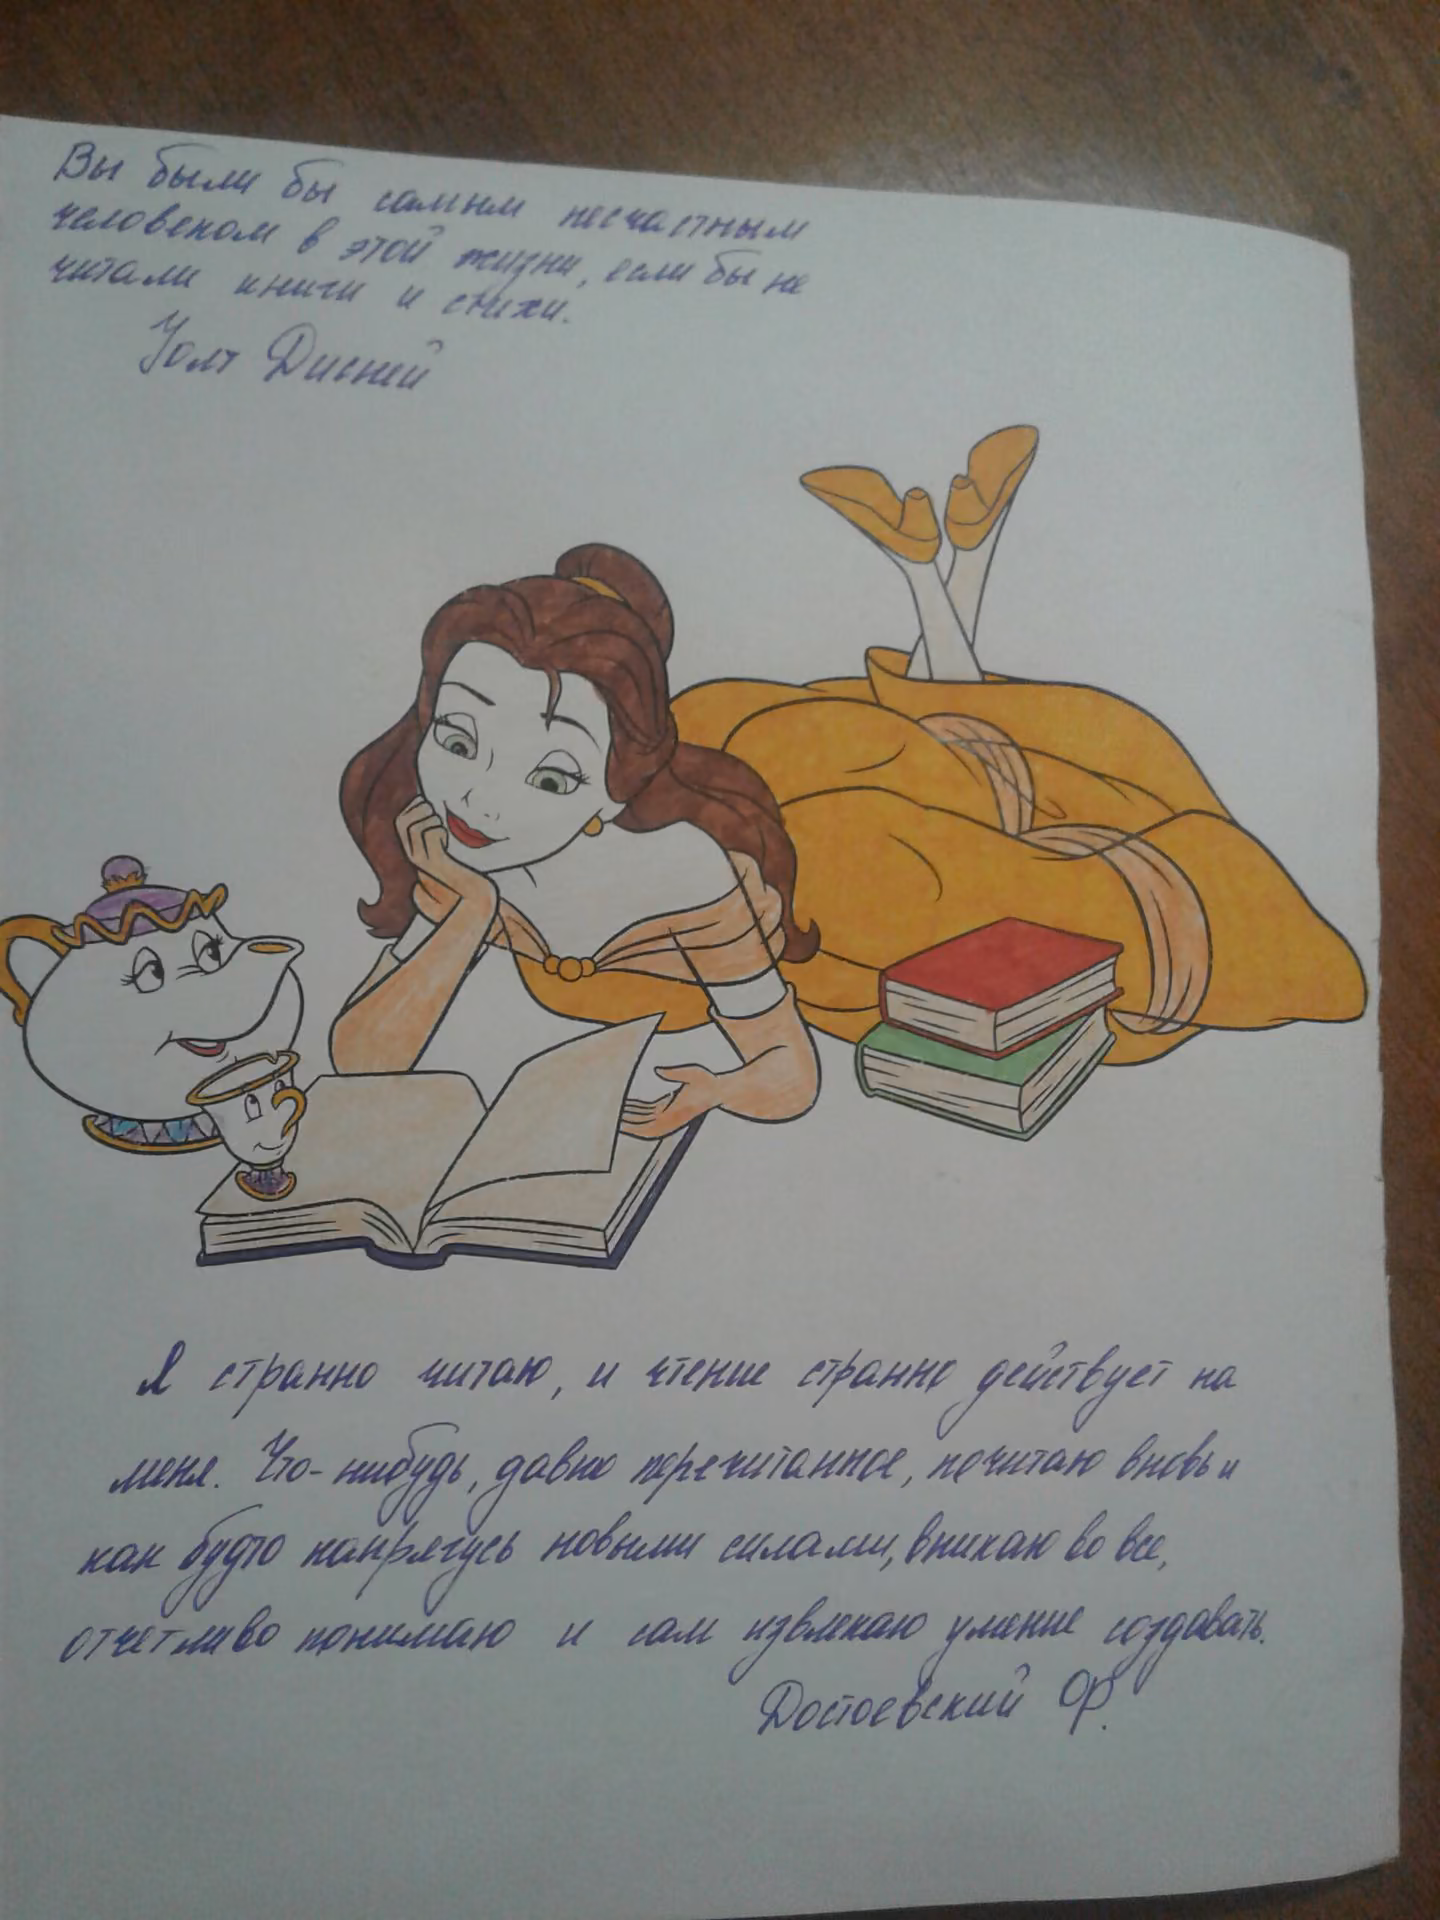 Вы были бы самым несчастным
человеком в этой жизни, если бы не
читали книги и стихи.
Уолт Дисней
Я странно читаю, и чтение странно действует на
меня. Что-нибудь, давно перечитанное, почитаю вновь и
как будто напрягусь новыми силами, вникаю во все,
отчетливо понимаю и сам извлекаю умение создавать.
Достоевский Ф.